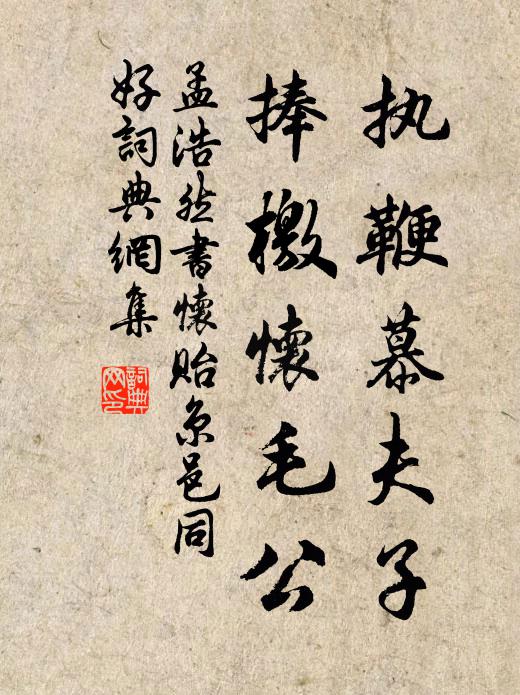 执鞭慕夫子
捧檄懷毛公
孟浩然書懷貽京邑同
好詞典網集
詞典網印